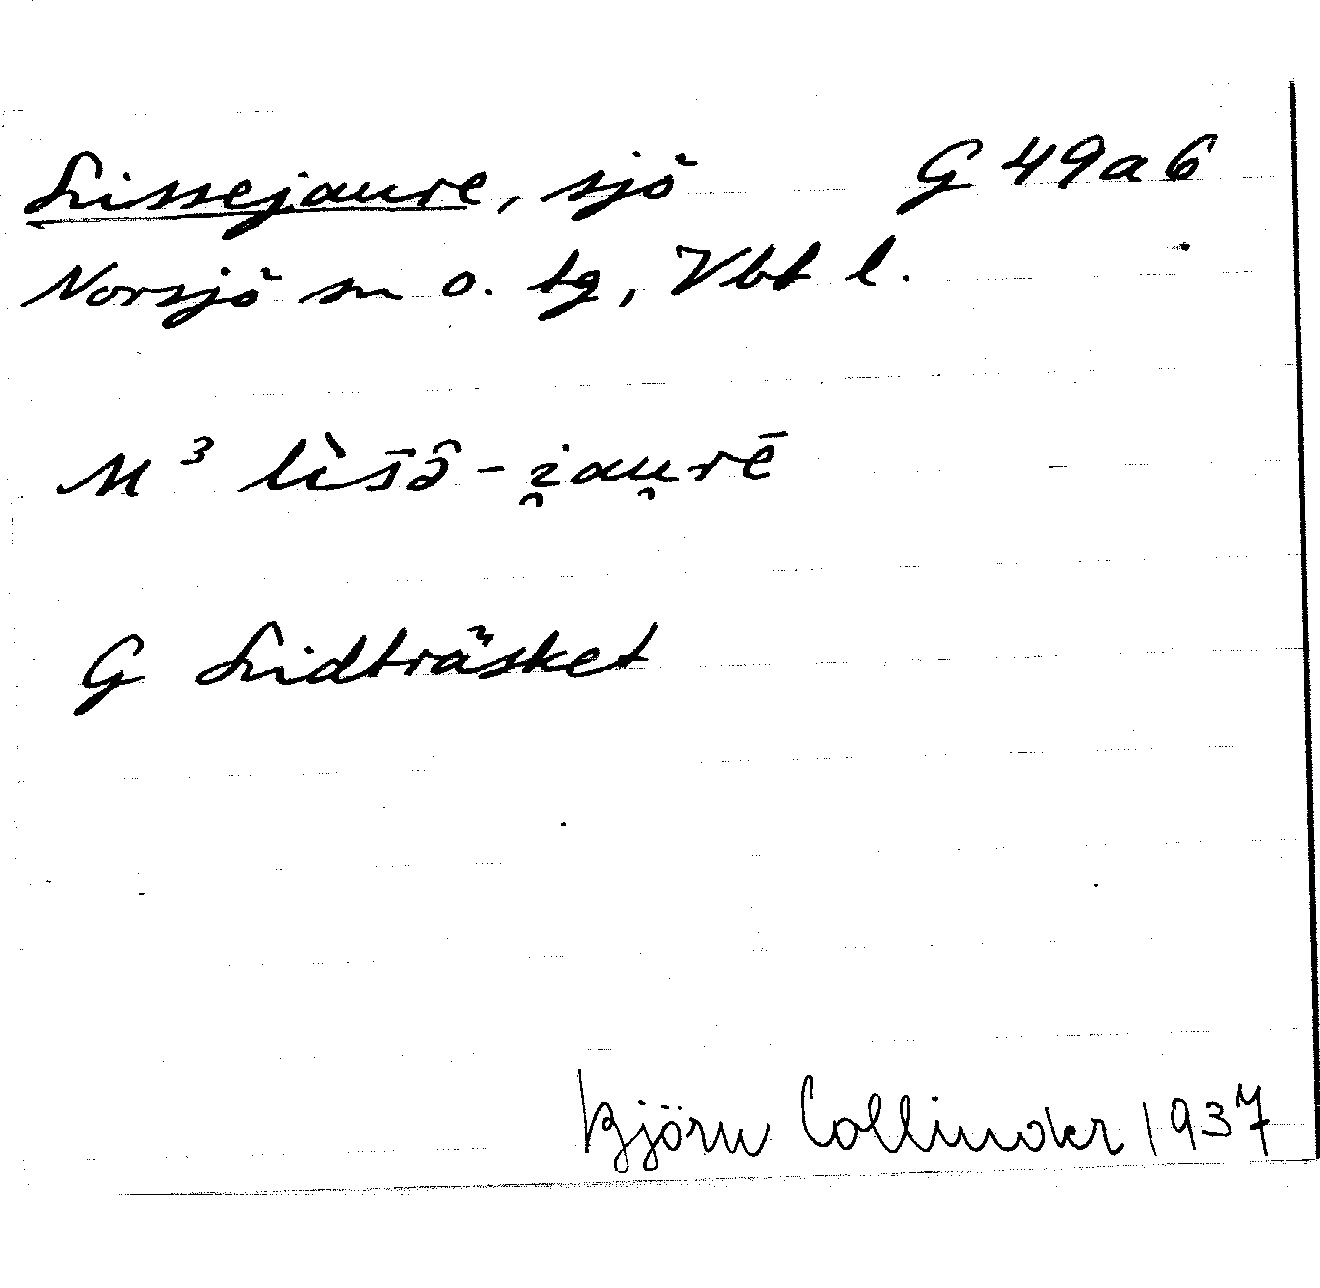 Lissejaure, sjö G 49a6
Norsjö sn o. tg, Vbt l.
M³ lìs̄ō̂-i̯au̯rē
G Lidträsket
Björn Collinder 1937